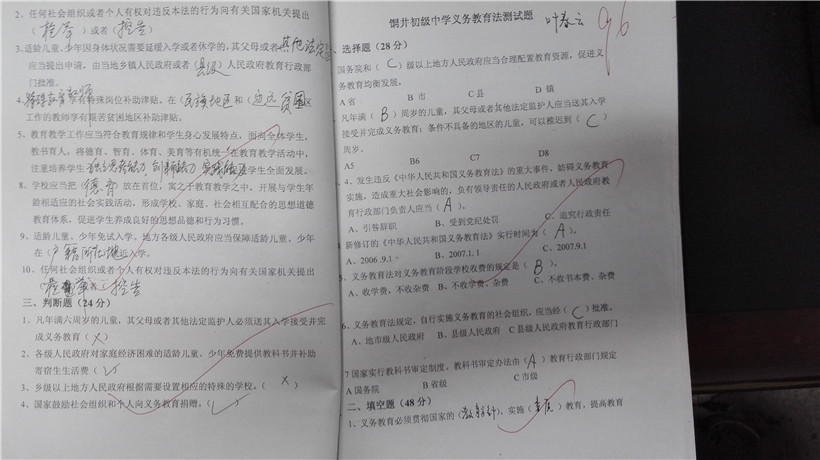 2、任何社会组织或者个人有权对违反本法的行为向有关国家机关提出
（检举）或者（控告）
3.适龄儿童、少年因身体状况需要延缓入学或者休学的，其父母或者其他法定
应当提出申请，由当地乡镇人民政府或者（县级）人民政府教育行政部
门批准。
有特殊岗位补助津贴。在（民族地区和（边远贫困区
工作的教师享有艰苦贫困地区补助津贴。
5、教育教学工作应当符合教育规律和学生身心发展特点，面向全体学生，
教书育人，将德育、智育、体育、美育等有机统一在教育教学活动中，
注重培养学生独立思考能力 创新能力 实践能力 学生全面发展。
8、学校应当把（德育）放在首位，寓之于教育教学之中，开展与学生年
龄相适应的社会实践活动，形成学校、家庭、社会相互配合的思想道德
教育体系，促进学生养成良好的思想品德和行为习惯。
9、适龄儿童、少年免试入学。地方各级人民政府应当保障适龄儿童、少年
在（户籍所在地近入学。
10、任何社会组织或者个人有权对违反本法的行为向有关国家机关提出
控告
三、判断题（24分）
1、凡年满六周岁的儿童，其父母或者其他法定监护人必须送其入学接受并完
成义务教育（×）
2、各级人民政府对家庭经济困难的适龄儿童、少年免费提供教科书并补助
寄宿生生活费（√）
3、乡级以上地方人民政府根据需要设置相应的特殊的学校。（×）
4、国家鼓励社会组织和个人向义务教育捐赠。（√）
铜井初级中学义务教育法测试题 叶春云 96
选择题（28分）
国务院和（C）级以上地方人民政府应当合理配置教育资源，促进义
务教育均衡发展。
A 省 B 市 C 县 D 镇
凡年满（B）周岁的儿童，其父母或者其他法定监护人应当送其入学
接受并完成义务教育；条件不具备的地区的儿童，可以推迟到（C）
周岁。
A5 B6 C7 D8
4、发生违反《中华人民共和国义务教育法》的重大事件，妨碍义务教育
实施，造成重大社会影响的，负有领导责任的人民政府或者人民政府教
育行政部门负责人应当（A）。
A、引咎辞职 B、受到党纪处罚 C、追究行政责任
新修订的《中华人民共和国义务教育法》实行时间为（A）。
A、2006.9.1 B、2007.1.1 C、2007.9.1
、义务教育法对义务教育阶段学校收费的规定是（B）。
A、收学费，不收杂费 B、不收学费、杂费 C、不收书本费、杂费
6、义务教育法规定，自行实施义务教育的社会组织，应当经（C）批准。
A、地市级人民政府 B、县级人民政府 C县级人民政府教育行政部门
7国家实行教科书审定制度。教科书审定办法由（A）教育行政部门规定
A 国务院 B 省级 C 市级
二、填空题（48分）
1、义务教育必须贯彻国家的（教育方针），实施（素质）教育，提高教育